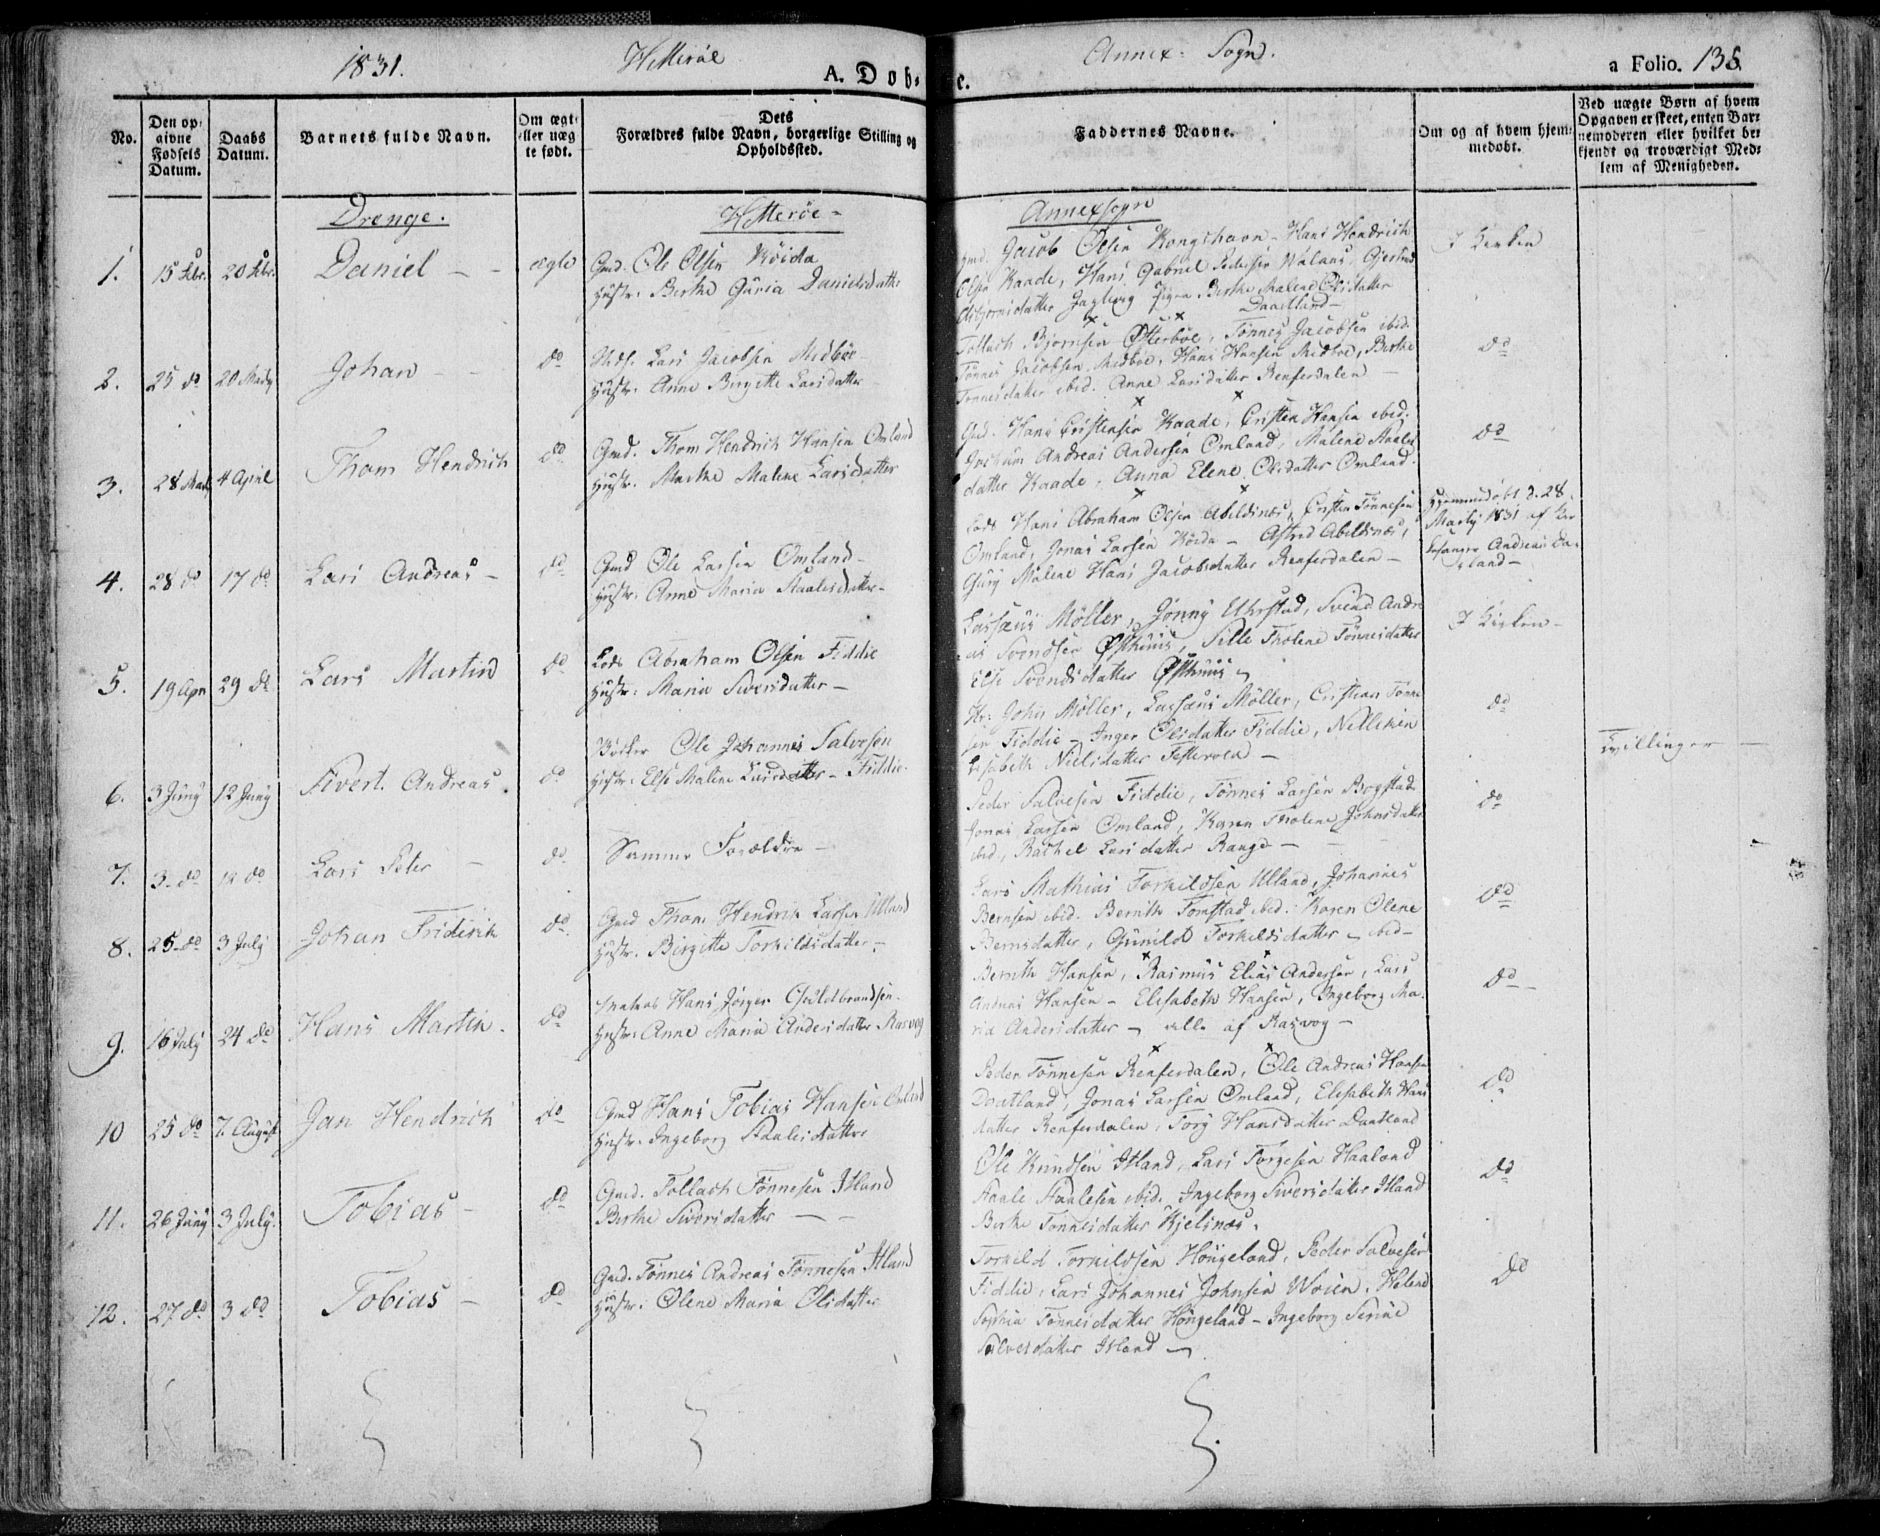 1831.
Hitteröe
A. Dob-
Annex- Sogn.
e.
a Folio. 135.
No.
Den op-
givne
Fødsels
Datum.
Daabs
Datum.
Barnets fulde Navn.
Om ægt-
eller uæg
te født.
Dets
Forældres fulde Navn, borgerlige Stilling og
Opholdssted.
Faddernes Navne.
Om og af hvem hjem-
medøbt.
Ved uægte Børn af hvem
Opgaven er skeet, enten Bar-
nemoderen eller hvilket be-
kjendt og troværdigt Med-
lem af Menigheden.
Drenge.
Hitteröe-
Annexsogn
1. 15 Febr. 20 Febr. Daniel - - ægte
Gmd. Ole Olsen Röida
Hustr: Berthe Guria Danielsdatter
Gmd. Jacob Olsen Kongshavn - Hans Hendrich
Olsen Raade, Hans Gabriel Pedersen
Asbjornsdatter Pigen Berthe Malene Olsdatter
Daatland-
I Kirken
2. 25 do 20 Martz Johan - - do
Lars Jacobsen Midböe-
Hustr: Anne Birgitte Larsdatter
Tollach Bjørnsen Østerböe, Tønnes Jacobsen ibid.
Tønnes Jacobsen Midböe, Hans Hansen Midböe, Berthe
Tønnesdatter ibid. Anne Larsdatter Renferdalen -
do
3. 28 Martz 4 April Thom Hendrich do
Gmd. Thom Hendrich Hansen Omland
Hustr. Marthe Malene Larsdatter
Gmd. Hans Cristensen Raade, Cristen Hansen ibid.
Jochum Andreas Andersen Omland, Malene Staales
datter Raade, Anna Elene Olsdatter Omland.
do
4. 28 do 17 do Lars Andreas - do
Gmd Ole Larsen Omland-
Hustr: Anne Maria Staalesdatter-
Lods Hans Abraham Olsen Abeldsnæs, Cristen Tønnesen
Omland, Jonas Larsen Röida - Astrid Abeldsnæs,
Gurj Malene Hans Jacobsdatter Renferdalen -
Hjemmedøbt d. 28
Martij 1831 af Kir
kesanger Andreas Da-
land-
5. 19 Apr 29 do Lars Martin do
Lods Abraham Olsen Fiddie
Hustr: Maria Siversdatter -
Lassæus Möller, Jonny Uhrstad, Svend Andre
as Svendsen Østhuus, Sille Tholene Tønnesdatter
Else Svendsdatter Østhuus -
I Kirken-
6. 3 Juny 12 Juny Sivert Andreas. do
Bödker Ole Johannes Salvesen
Hustr: Else Malene Larsdatter - Fiddie.
Hr: John Möller, Lassæus Möller, Cristian Tønne
sen Fiddie - Inger Olsdatter Fiddie, Nilliken
Elisabeth Nielsdatter -
do
Tvillinger -
7. 3 do 12 do Lars Peter - do.
Samme Forældre -
Peder Salvesen Fiddie, Tønnes Larsen Bogstad
Jonas Larsen Omland, Karen Tholene Johnsdatter
ibid, Rachel Larsdatter Rauge -
do
8. 25 do 3 July Johan Friderik do.
Gmd Thom Hendrik Larsen Ulland
Hustr. Birgitte Torkildsdatter -
Lars Mathias Torkildsen Ulland, Johannes
Berntsen ibid. Bernth Tomstad ibid. Karen Olene
Berntsdatter, Gunild Torkildsdatter - ibid -
do
9. 16 July 24 do Hans Martin. do
Hans Jörgen Guldbrandsen.
Hustr: Anne Maria Andersdatter Rasvog
Bernth Hansen, Rasmus Elias Andersen, Lars
Andreas Hansen - Elisabeth Hansen, Ingeborg Ma-
ria Andersdatter - alle af Rasvog -
do -
10 25 do 7. August Jan Hendrich do
Gmd Hans Tobias Hansen Omland
Hustr: Ingeborg Staalesdatter
Peder Tønnesen Renferdalen, Ole Andreas Hansen
Daatland, Jonas Larsen Omland, Elisabeth Hans
datter Renferdalen, Torj Hansdatter Daatland
do
11. 26 Juny 3 July. Tobias - do
Gmd. Tollach Tønnesen Itland
Berthe Siversdatter - -
Ole Knudsen Itland, Lars Torgesen Haaland
Staale Staalesen ibid, Ingeborg Siversdatter Itland
Berthe Tønnesdatter Kjelsnæs.
do
12. 27 do 3 do Tobias - do
Gmd. Tønnes Andreas Tønnesen Itland
Hustr: Olene Maria Olsdatter
Torkild Torkildsen Höngeland, Peder Salvesen
Fiddie, Lars Johannes Johnsen Woien, Helene
Sophia Tønnesdatter Höngeland - Ingeborg Serine
Salvesdatter Itland -
do